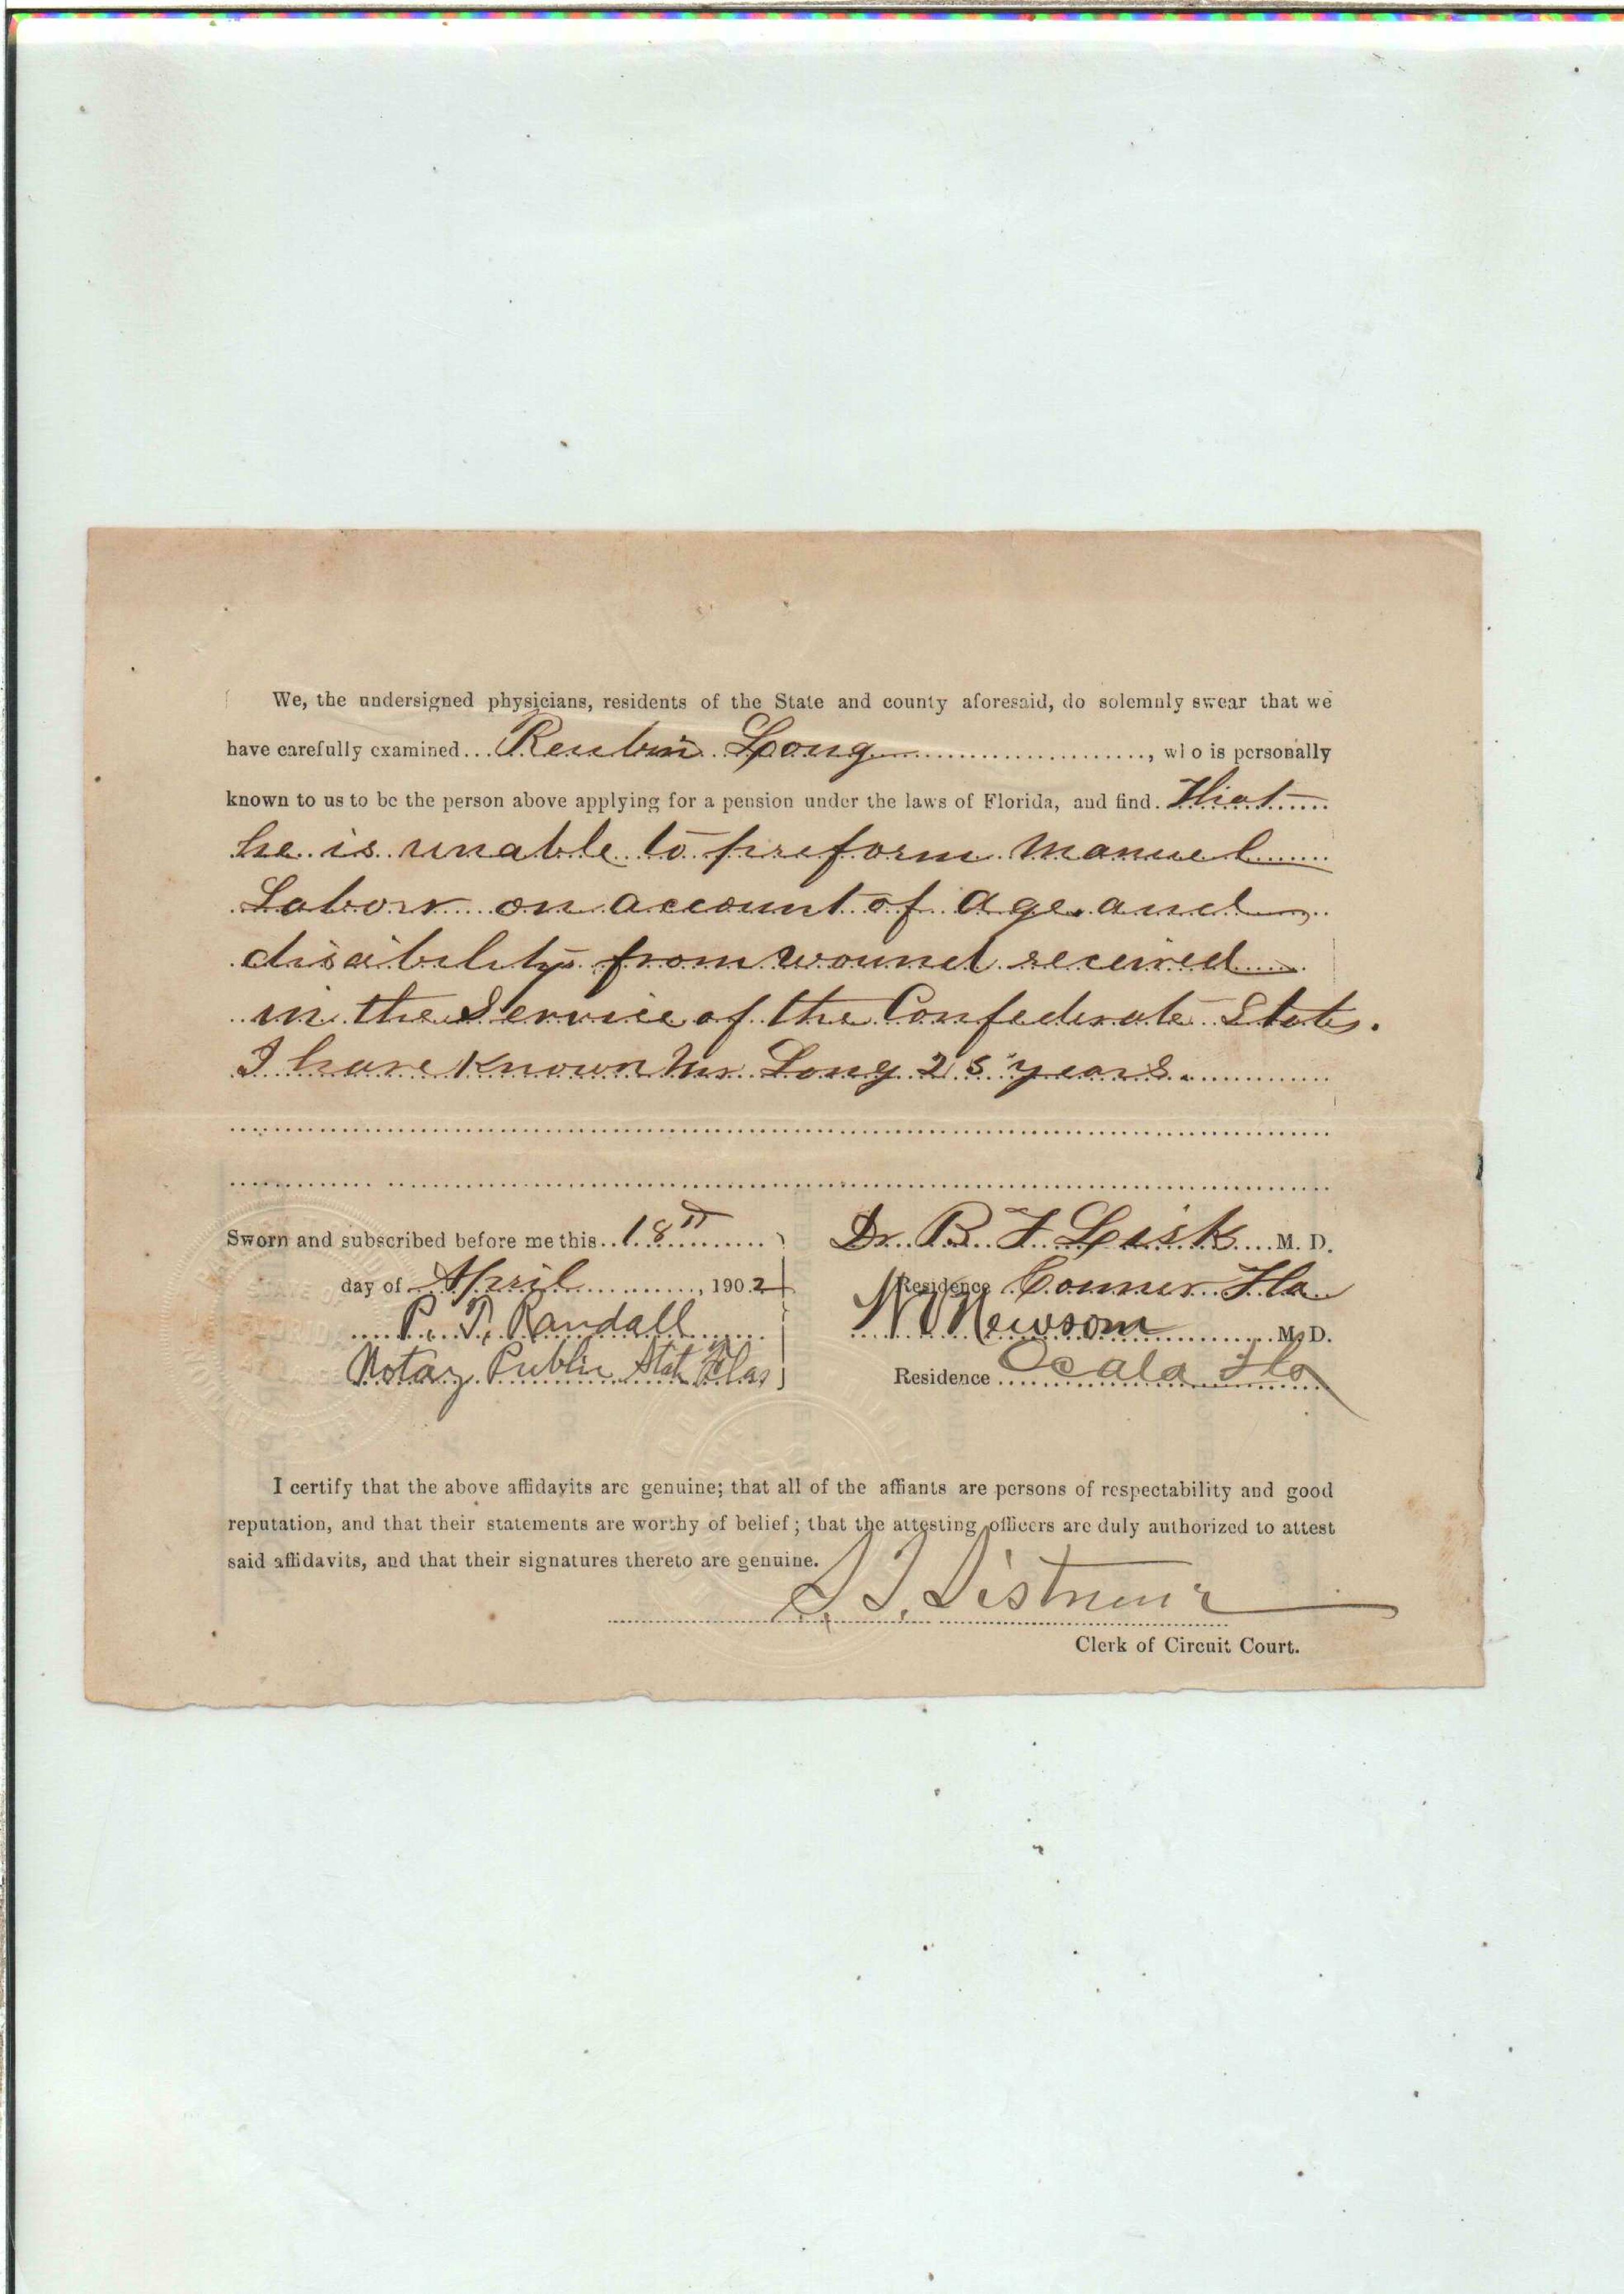 We, the undersigned physicians, residents of the State and county aforesaid, do solemnly swear that we
have carefully examined... Reubin Long ..................., wl o is personally
known to us to be the person above applying for a pension under the laws of Florida, and find. That
he is unable to preform manuel
Labor on account of age and
disibility from wound received
in the Service of the Confederate States.
I have known Mr Long 25 years.
Sworn and subscribed before me this 18th
day of April, 1902
P. T. Randall
Notary Public State Flas
Dr B F Lisk M. D.
Residence Conner Fla
W V Newsom M. D.
Residence Ocala Fla
I certify that the above affidavits are genuine; that all of the affiants are persons of respectability and good
reputation, and that their statements are worthy of belief; that the attesting officers are duly authorized to attest
said affidavits, and that their signatures thereto are genuine.
Clerk of Circuit Court.